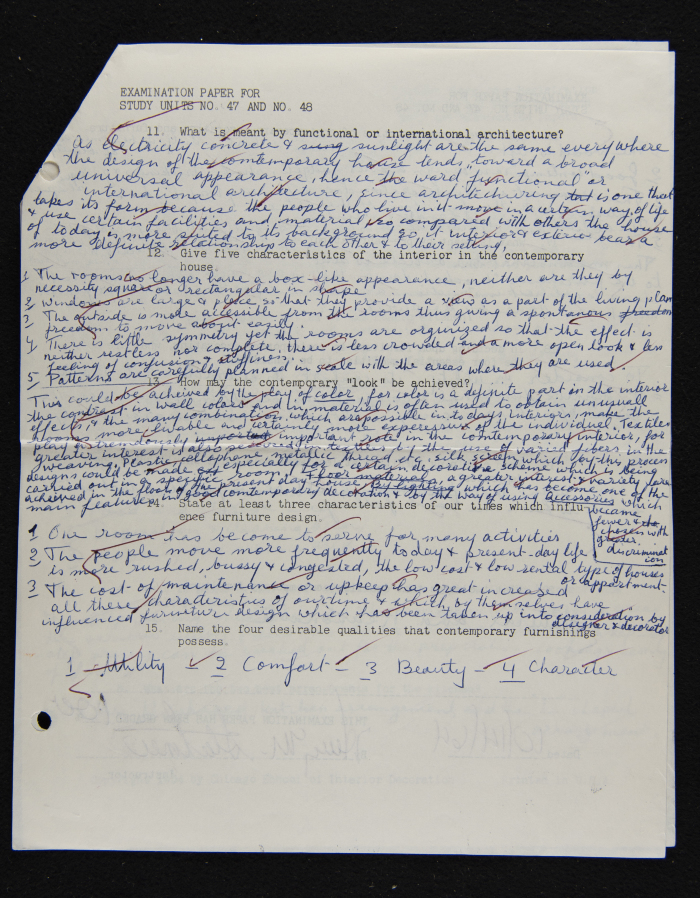 EXAMINATION PAPER FOR
STUDY UNITS NO. 47 AND NO. 48
11. What is meant by functional or international architecture?
As electricity concrete & sunlight are the same everywhere
the design of the comtemporary house tends, "toward a broad
universal appearance, hence the word functional" or
international architecture, since architecturing is one that
takes its form because the people who live in it move in a certain way of life
& use certain facilities and material so compared with others the house
of today is more suited to its background so, it interior & exterior bear a
more definite relationship to each other & to their setting.
12. Give five characteristics of the interior in the contemporary
house.
1 The rooms no longer have a box-like appearance, neither are they by
necessity square or rectangular in shape.
2 Windows are large & place so that they provide a view as a part of the living plan
3 The outside is made accessible from the rooms thus giving a spontaneous freedom
freedom to move about easily.
4 There is little symmetry yet the rooms are organized so that the effect is
neither restless nor complete, there is less crowded and a more open look & less
feeling of confusion & stuffiness.
5 Patterns are carefully planned in scale with the areas where they are used.
13. How may the contemporary "look" be achieved?
This could be achieved by the play of color, for color is a definite part in the interior
the contrast in wall colors and in material is often used to obtain unusuall
effects, & the many combination which are possible in to days interiors, make the
rooms more livable and certainly more experessive of the individual. Textiles
play astrenuously important role in the comtemporary interior, for
greater interest is also secured in textiles by the use of varied fibers in the
weaving. Plastic cellophane, metallic thread etc. silk screen which by this process
designs could be made out especially for a certain decorative scheme which is being
carried out in a specific room, floor materials, a greater interest & variety are
achieved in the floor of the present day house, & lighting which has become one of the
main features of good contemporary decoration & by the way of using accessories which
became
fewer &
chosen with
greater
discrimination
14. State at least three characteristics of our times which influ-
ence furniture design.
1 One room has become to serve for many activities
2 The people move more frequently today & present-day life
is more rushed, bussy & congested, the low cost & low rental type of houses
or appartment.
3 The cost of maintenance or upkeep has great increased
all these characteristics of our time & which by themselves have
influenced furniture design which has been taken up into consideration by
designer & decorator
15. Name the four desirable qualities that contemporary furnishings
possess.
1 Utility - 2 Comfort - 3 Beauty - 4 Character